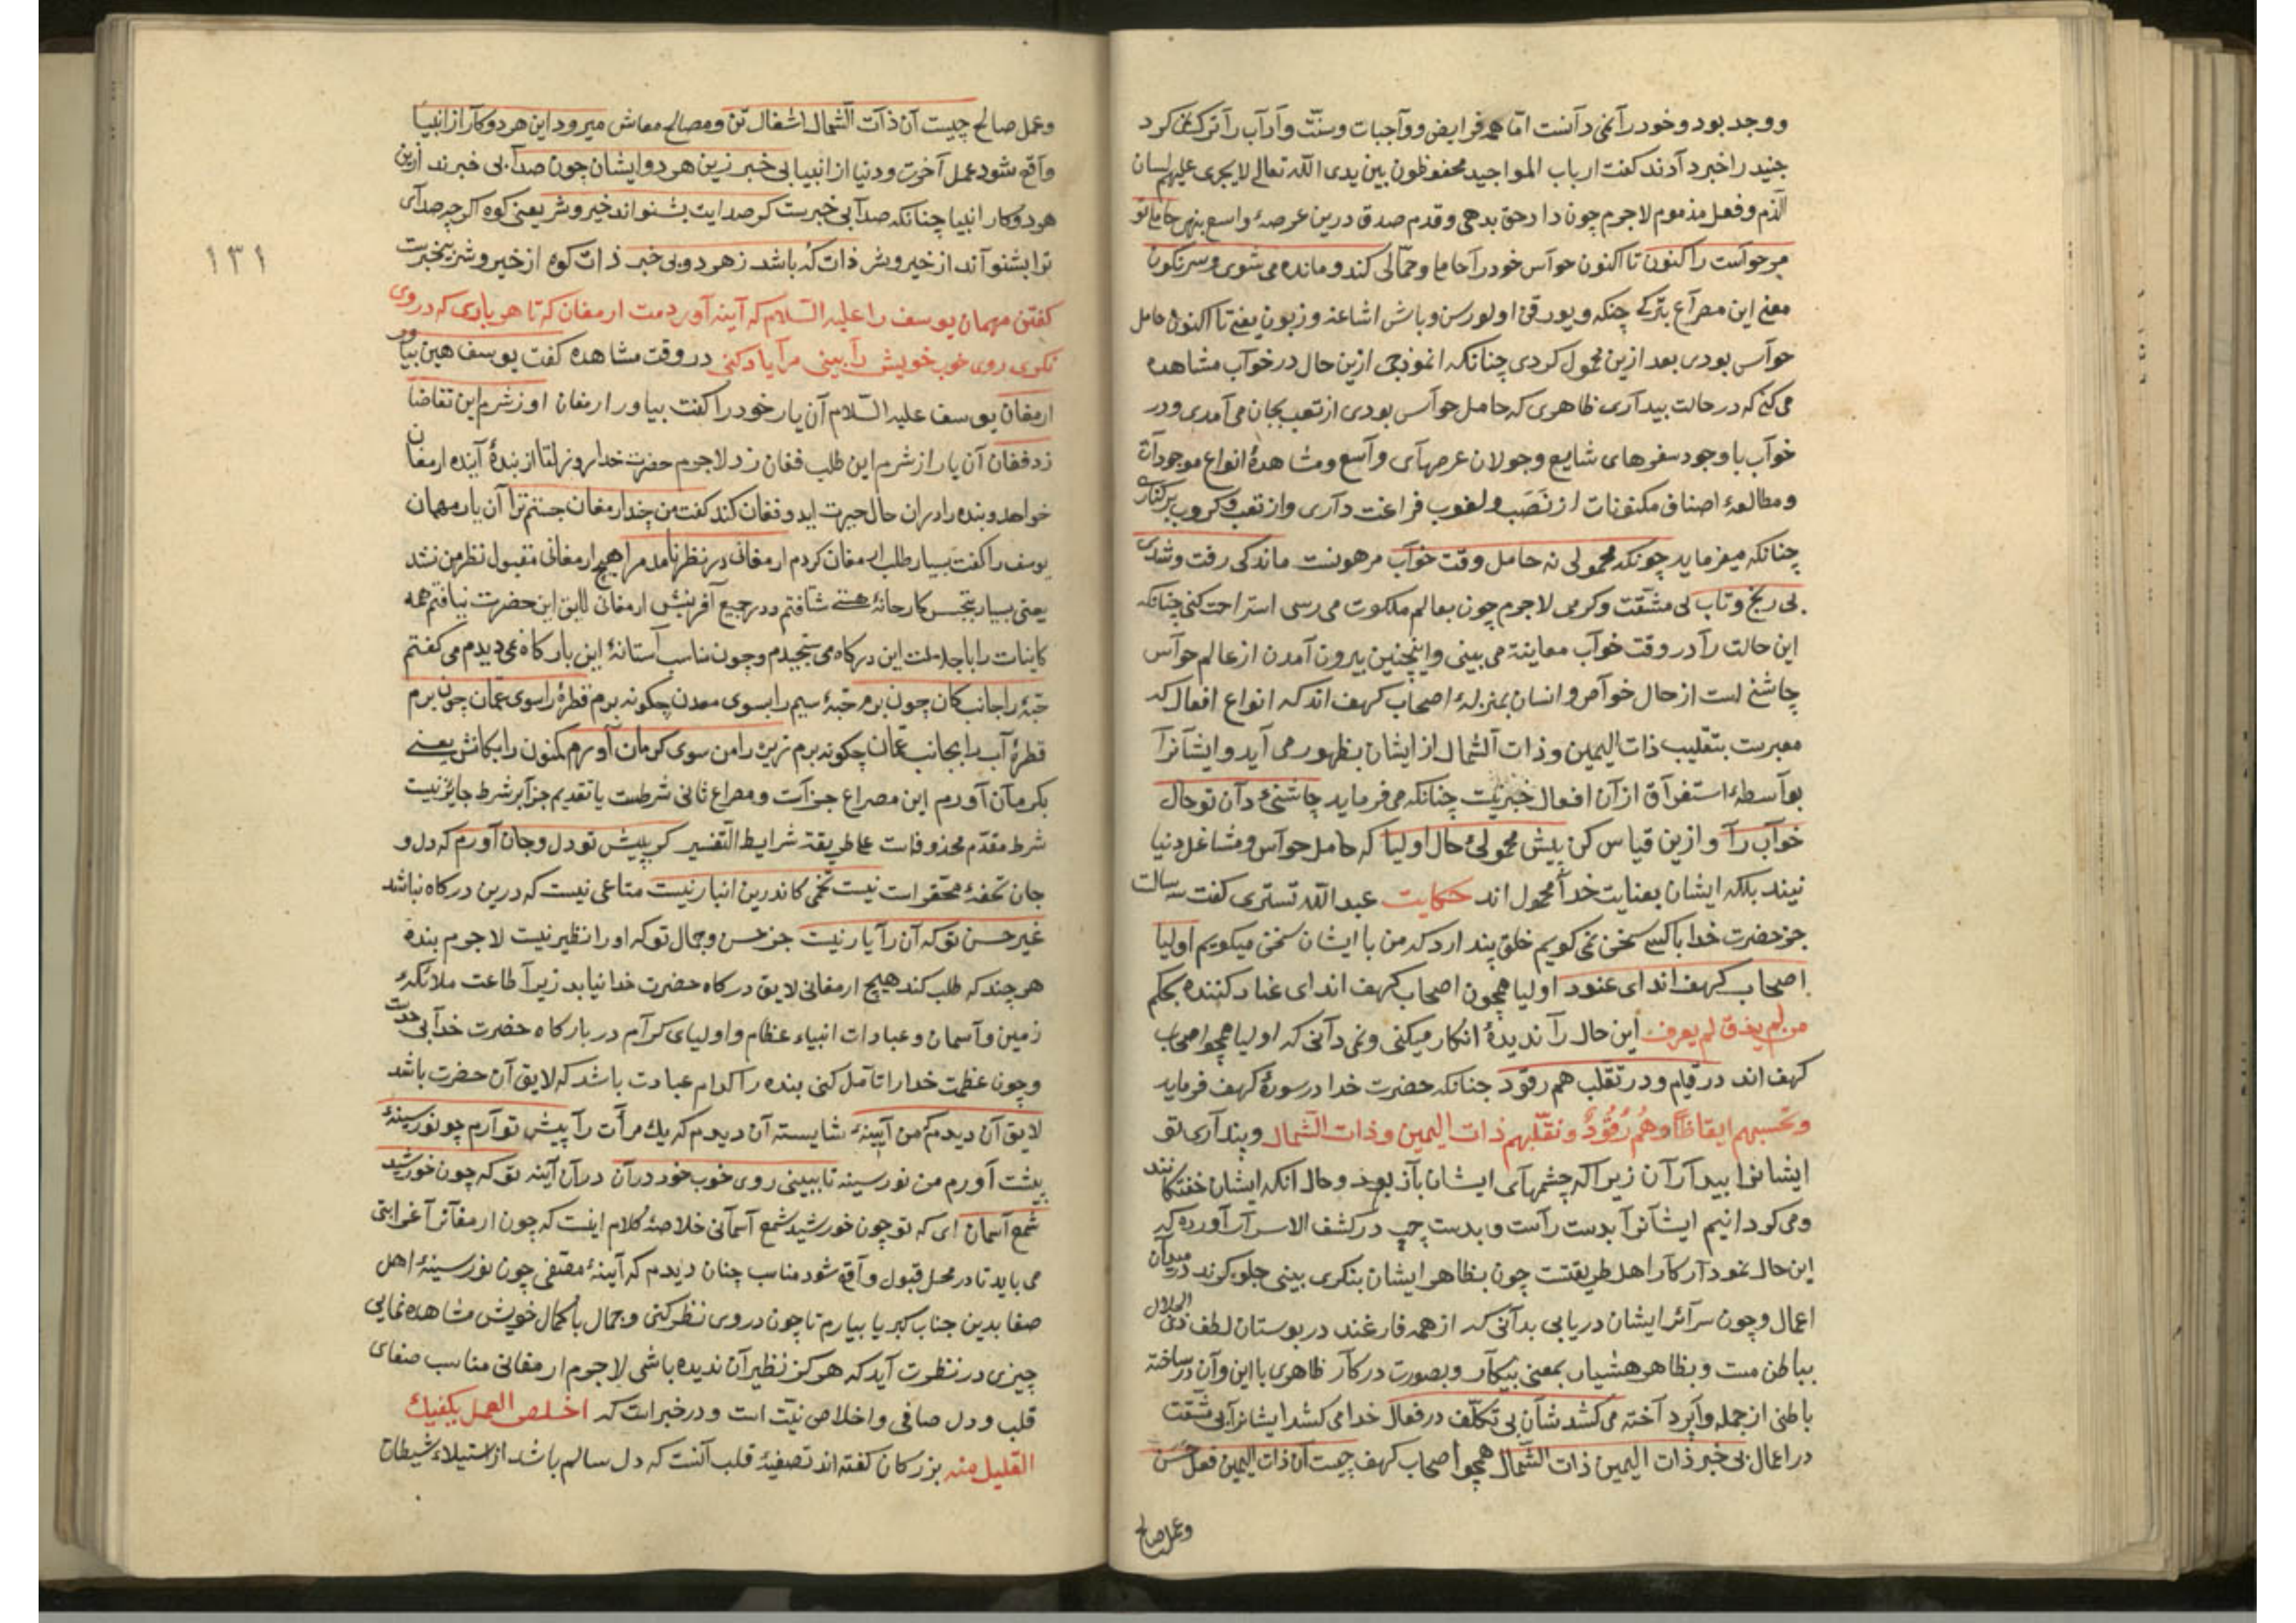 ووجد بود و خود را نمی دانست اما همه فرایض و واجبات و سنت و آداب را ترک نمی کرد
جنید را خبر دادند کفت ارباب المواجید محفوظون بین یدی الله تعالی لا یجری علیهم لسان
الذم و فعل مذموم لاجرم چون داد حق بدهی و قدم صدق درین عرصهٔ واسع بنهی حاملی تو
مر حواست را کنون تا اکنون حواس خود را حامل و حمالی کند و مانده می شوی و سرنکون
معنی این مصراع بترکی چنکه و یورقن اولورسن و باش اشاغه و زبون یعنی تا اکنون حامل
حواس بودی بعد ازین محمول کردی چنانکه انموذجی ازین حال در خواب مشاهده
می کنی که در حالت بیداری ظاهری که حامل حواس بودی از تعب بجان می آمدی و در
خواب باوجود سفرهای شایع و جولان عرصهای واسع و مشاهدهٔ انواع موجودات
و مطالعهٔ اصناف مکنونات از نَصَب و لغوب فراغت داری و از تعب و کروب برکناری
چنانکه میفرماید چونکه محمولی نه حامل وقت خواب مر هونست ماندکی رفت و شدی
بی رنج و تاب بی مشقت و کرمی لاجرم چون بعالم ملکوت می رسی استراحت کنی چنانکه
این حالت را در وقت خواب معاینه می بینی و اینچنین بیرون آمدن از عالم حواس
چاشنی است از حال خواص و انسان بمنزلهٔ اصحاب کهف اند که انواع افعال که
معبرست بتقلیب ذات الیمین و ذات الشمال از ایشان بظهور می آید و ایشانرا
بواسطهٔ استغراق از آن افعال خبر نیست چنانکه می فرماید چاشنیٔ دان تو حال
خواب را و ازین قیاس کن پیش محمولیٔ حال اولیا که حامل حواس و مشاغل دنیا
نیند بلکه ایشان بعنایت خدا محمول اند حکایت عبد الله تستری کفت سی سالست
جز حضرت خدا با کسی سخن نمی کویم خلق پندارد که من با ایشان سخن میکویم اولیا
اصحاب کهف اند ای عنود اولیا همچون اصحاب کهف اند ای عناد کننده بحکم
من لم یذق لم یعرف این حال را ندیدهٔ انکار میکنی و نمی دانی که اولیا همچو اصحاب
کهف اند در قیام و در تقلب هم رقود چنانکه حضرت خدا در سورهٔ کهف فرماید
وتحسبهم ایقاظا وهُم رُقُودٌ ونقلّبهم ذات الیمین وذات الشمال و پنداری تو
ایشانرا بیداران زیرا که چشمهای ایشان باز بود و حال آنکه ایشان خفتکانند
و می کردانیم ایشانرا بدست راست و بدست چپ در کشف الاسرار آورده که
این حال نمودار کار اهل طریقتست چون بظاهر ایشان بنکری بینی جلوه کرند در میدان
اعمال و چون سرائر ایشان دریابی بدانی که از همه فارغند در بوستان لطف ذی الجلال
بباطن مست و بظاهر هشیار بمعنی بیکار و بصورت در کار ظاهری با این و آن در ساخته
باطنی از جمله واپرداخته می کشدشان بی تکلّف در فعال خدا می کشد ایشانرا بی مشقت
در اعمال بی خبر ذات الیمین ذات الشمال همچو اصحاب کهف چیست آن ذات الیمین فعل حسن
وعمل صالح
وعمل صالح چیست آن ذات الشمال اشغال تن و مصالح معاش میرود این هر دو کار از انبیا
واقع شود عمل آخرت و دنیا از انبیا بی خبر زین هر دو ایشان چون صدا بی خبرند ازین
هر دو کار انبیا چنانکه صدا بی خبرست کر صدایت بشنواند خیر و شر یعنی کوه اکر چه صدای
ترا بشنواند از خیر و شر ذات که باشد ز هر دو بی خبر ذات کوه از خیر و شر بیخبرست
۱۳۱
کفتن مهمان یوسف را علیه السلام که آینه آوردمت ارمغان که تا هر باری که در وی
نکری روی خوب خویش را ببینی مرا یاد کنی در وقت مشاهده کفت یوسف هین بیاور
ارمغان یوسف علیه السلام آن یار خود را کفت بیاور ارمغان او ز شرم این تقاضا
زد فغان آن یار از شرم این طلب فغان زد لاجرم حضرت خدا روز لقا از بندهٔ آینده ارمغان
خواهد و بنده را دران حال حیرت آید و فغان کند کفت من چند ارمغان جستم ترا آن یار مهمان
یوسف را کفت بسیار طلب ارمغان کردم ارمغانی در نظر نامد مرا هیچ ارمغانی مقبول نظر من نشد
یعنی بسیار بتجسس کارخانهٔ هستی شتافتم و در جمیع آفرینش ارمغانی لایق این حضرت نیافتم همه
کاینات را با جلالت این درکاه می سنجیدم و چون مناسب آستانهٔ این بارکاه نمی دیدم می کفتم
حبهٔ را جانب کان چون برم حبهٔ سیم را بسوی معدن چکونه برم قطرهٔ را سوی عمان چون برم
قطرهٔ آب را بجانب عمان چکونه برم زیره را من سوی کرمان آورم مکنون را بکانش یعنی
بکرمان آورم این مصراع جزاست و مصراع ثانی شرطست یا تقدیم جزا بر شرط جایز نیست
شرط مقدّم محذوفست علی طریقة شرایط التفسیر کر بپیش تو دل و جان آورم که دل و
جان تحفهٔ محقر است نیست تخمی کاندرین انبار نیست متاعی نیست که درین درکاه نباشد
غیر حسن تو که آن را یار نیست جز حسن و جمال تو که او را نظیر نیست لاجرم بنده
هر چند که طلب کند هیچ ارمغانی لایق درکاه حضرت خدا نیابد زیرا طاعت ملائکهٔ
زمین و آسمان و عبادات انبیاء عظام و اولیای کرام در بارکاه حضرت خدا بی حدست
و چون عظمت خدا را تأمل کنی بنده را کدام عبادت باشد که لایق آن حضرت باشد
لایق آن دیدم که من آیینهٔ شایسته آن دیدم که یك مرأت را پیش تو آرم چو نور سینهٔ
پیشت آورم من نور سینه تا ببینی روی خوب خود در آن در آن آینه تو که چون خورشید
شمع آسمان ای که تو چون خورشید شمع آسمانی خلاصهٔ کلام اینست که چون ارمغانرا غرابتی
می باید تا در محل قبول واقع شود مناسب چنان دیدم که آیینهٔ مصفی چون نور سینهٔ اهل
صفا بدین جناب کبریا بیارم تا چون در وی نظر کنی و جمال با کمال خویش مشاهده نمایی
چیزی در نظرت آید که هرکز نظیر آن ندیده باشی لاجرم ارمغانی مناسب صفای
قلب و دل صافی و اخلاص نیّت است و در خبر است که اخلص العمل یکفیك
القلیل منه بزرکان کفته اند تصفیهٔ قلب آنست که دل سالم باشد از استیلاء شیطان